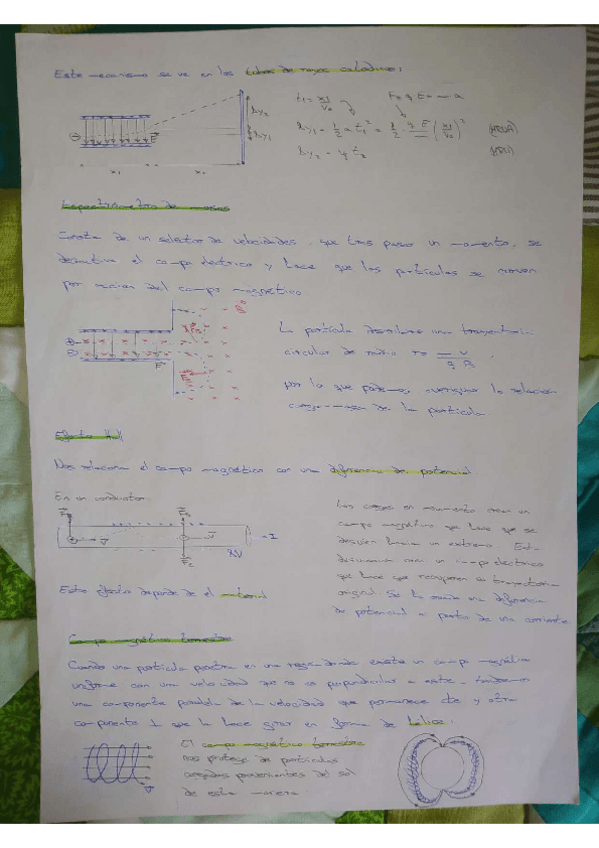 Este mecanismo se ve en los tubos de rayos catódicos:
t₁ = x₁/v₀
F = q E = m a
Δy₁ = 1/2 a t₁² = 1/2 q·E/m (x₁/v₀)² (MRUA)
Δy₂ = t₂ (MRU)
E
Δy₂
Δy₁
x₁
x₂
Espectrómetro de masas
Consta de un selector de velocidades, que tras pasar un momento, se
desactiva el campo eléctrico y hace que las partículas se muevan
por acción del campo magnético
La partícula describe una trayectoria
circular de radio
por lo que podemos averiguar la relación
carga-masa de la partícula
Efecto Hall
Nos relaciona el campo magnético con una diferencia de potencial
En un conductor
I
ΔV
Las cargas en movimiento crean un
campo magnético que hace que se
desvíen hacia un extremo. Este
campo eléctrico
que hace que recuperen su trayectoria
original. Se ha creado una diferencia
de potencial a partir de una corriente
Este efecto depende de el material
Campo magnético terrestre
Cuando una partícula penetra en una región donde existe un campo magnético
uniforme con una velocidad que no es perpendicular a este, tendremos
una componente paralela de la velocidad que permanece cte y otra
componente ⊥ que la hace girar en forma de hélice.
El campo magnético terrestre
nos protege de partículas
cargadas provenientes del sol
de esta manera